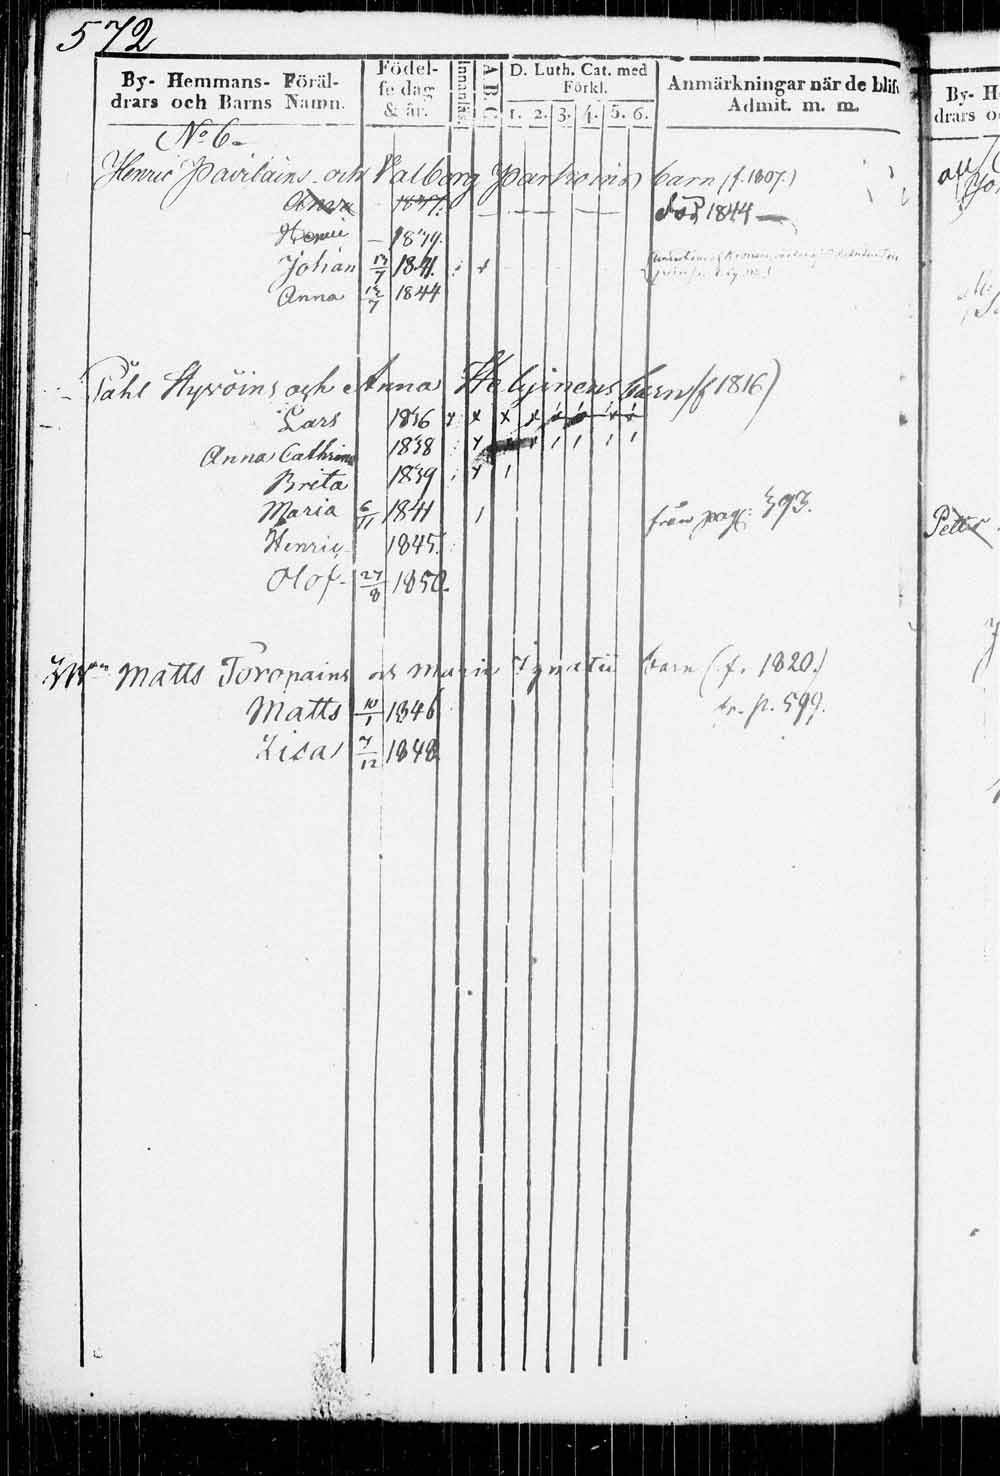 572
By- Hemmans- Föräl-
drars och Barns Namn.
Födel-
se dag
& år.
Innanläs.
A.B.C.
D. Luth. Cat. med
Förkl.
1. 2. 3. 4. 5. 6.
Anmärkningar när de blif
Admit. m. m.
No 6
Henric Pavilains och Valborg Parkoinens barn (f. 1807.)
Anna 1837. död 1844
Henric 1839.
Johan 13/7 1841.
Anna 12/7 1844
Påhl Hyvöins och Anna barn (f 1816)
Lars 1836
Anna Cathrina 1838
Brita 1839
Maria 6/11 1841 från pag: 393.
Henric 1845.
Olof 27/8 1850.
Matts Toropains och Maria Ignatii barn (f. 1820.)
Matts 10/1 1846 fr. p. 599.
Lisa 7/12 1848.
By- H
drars o
Petter